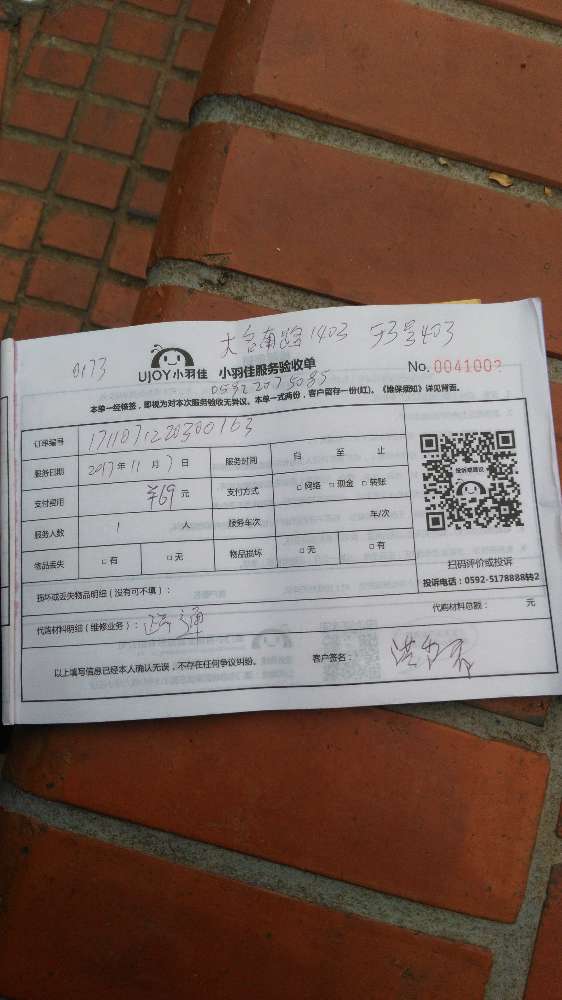 0173
UJOY小羽佳
小羽佳服务验收单
No. 0041002
本单一经核签，即视为对本次服务验收无异议。本单一式两份，客户留存一份(红)。《维保须知》详见背面。
订单编号
服务日期 2017年11月7日 服务时间 自 至 止
支付费用 ¥69元 支付方式 □网络 □现金 □转账
服务人数 1 人 服务车次 车/次
物品丢失 □有 □无 物品损坏 □无 □有
投诉或建议
扫码评价或投诉
投诉电话：0592-5178888转2
损坏或丢失物品明细（没有可不填）：
代购材料明细（维修业务）： 代购材料总额： 元
以上填写信息已经本人确认无误，不存在任何争议纠纷。 客户签名：